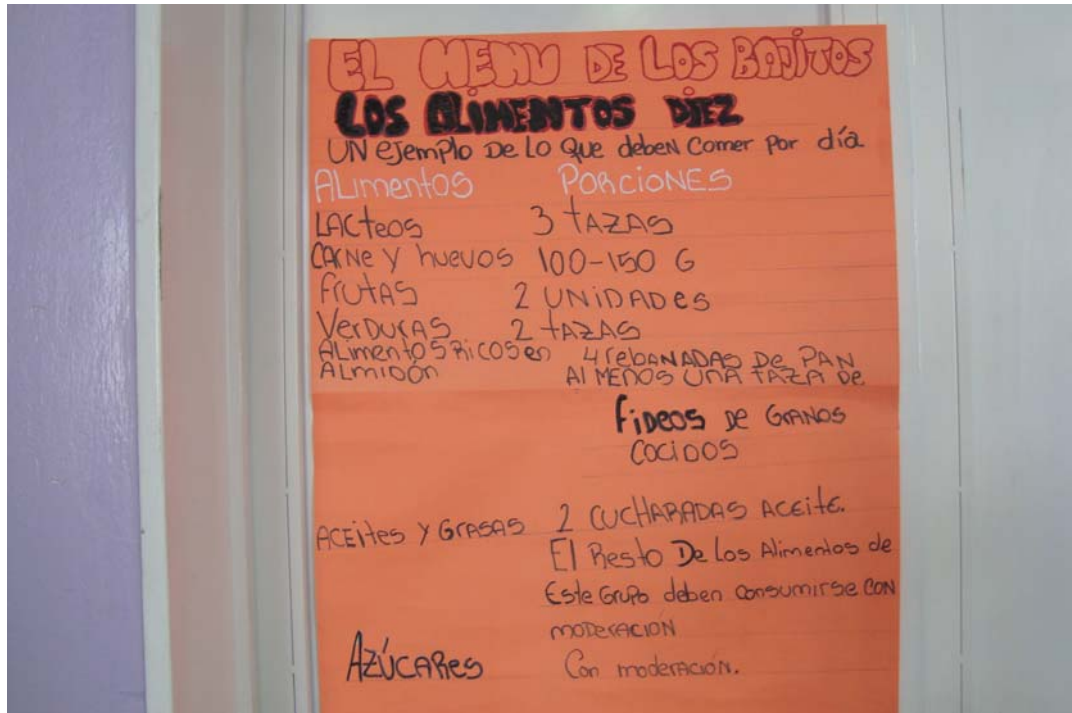 EL MENU DE LOS BAJITOS
LOS ALIMENTOS DIEZ
UN ejemplo De Lo Que deben Comer por día
ALimentos PORCIONES
LACteos 3 tAZAS
CARNe y huevos 100-150 G
FRUTAS 2 UNIDADes
VerDURAS 2 tAZAS
ALimentos Ricos en 4 rebANADAS De PAN
ALMIDÓN Al MENOS UNA TAZA DE
FiDeos De GRANOS
COCIDOS
ACEites y GRASAS 2 CUCHARADAS ACEite.
El Resto De Los Alimentos de
Este Grupo deben consumirse CON
MODERACIÓN
AZÚCARes Con moderación.